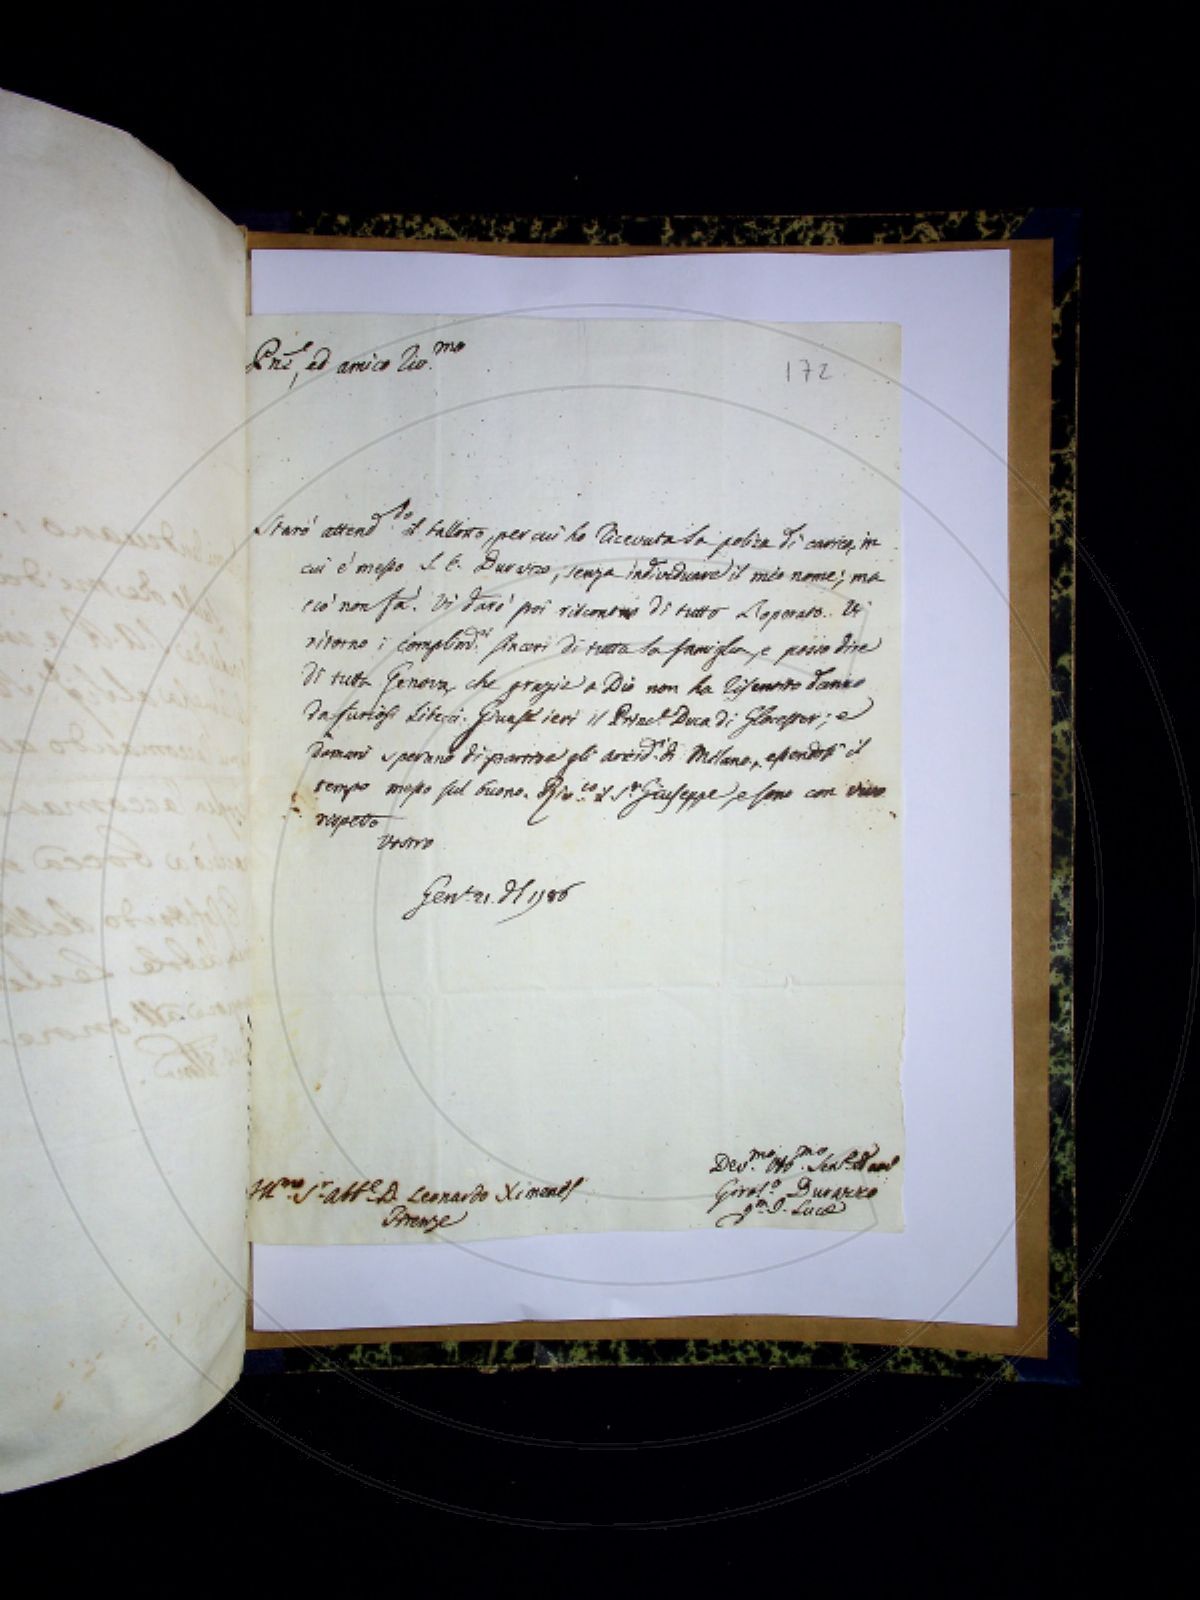 172
Pne, ed amico Riv.mo
Starò attend.do il fallotto, per cui ho Ricevuta la poliza di carico, in
cui è messo S. E. Durazzo, senza individuare il mio nome; ma
ciò non fà. Vi darò poi riscontro di tutto L'operato. Vi
ritorno i complim.ti sinceri di tutta la famiglia, e posso dire
di tutta Genova, che grazie a Dio non ha Risentito danno
da furiosi Libecci. Giunse ieri il Princ.e Duca di Glocester; e
domani sperano di partire gli arcid.i di Milano, essendosi il
tempo messo sul buono. Riv.co il S.r Giuseppe, e sono con vivo
rispetto
Vostro
Gen.a 21. 1786
Ill.mo S.r Abb.e D. Leonardo Ximenes
Firenze
Dev.mo Obb.mo
Girol.o Durazzo
q.m S. Luca